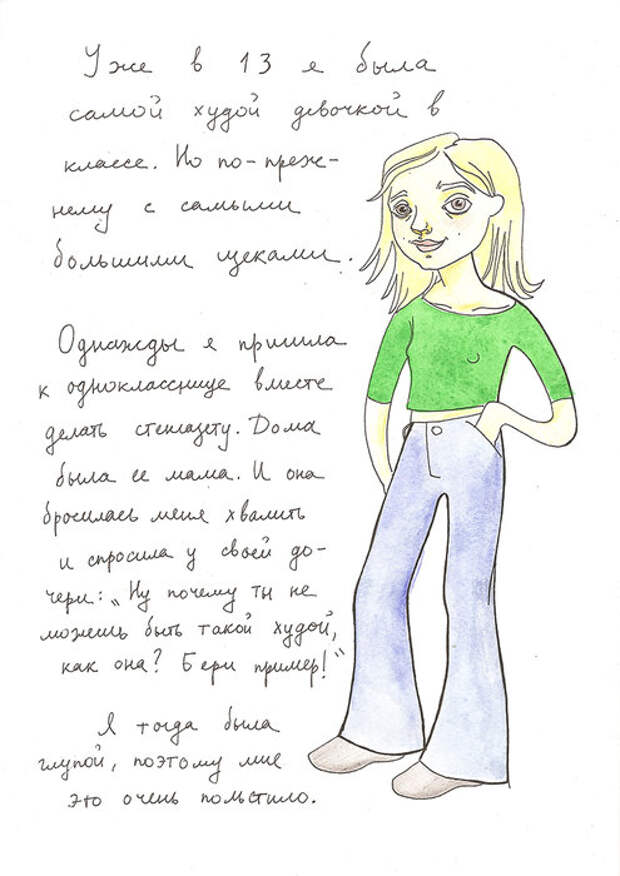 Уже в 13 я была
самой худой девочкой в
классе. Но по-преж-
нему с самыми
большими щеками.
Однажды я пришла
к однокласснице вместе
делать стенгазету. Дома
была ее мама. И она
бросилась меня хвалить
и спросила у своей до-
чери: „Ну почему ты не
можешь быть такой худой,
как она? Бери пример!"
Я тогда была
глупой, поэтому мне
это очень польстило.